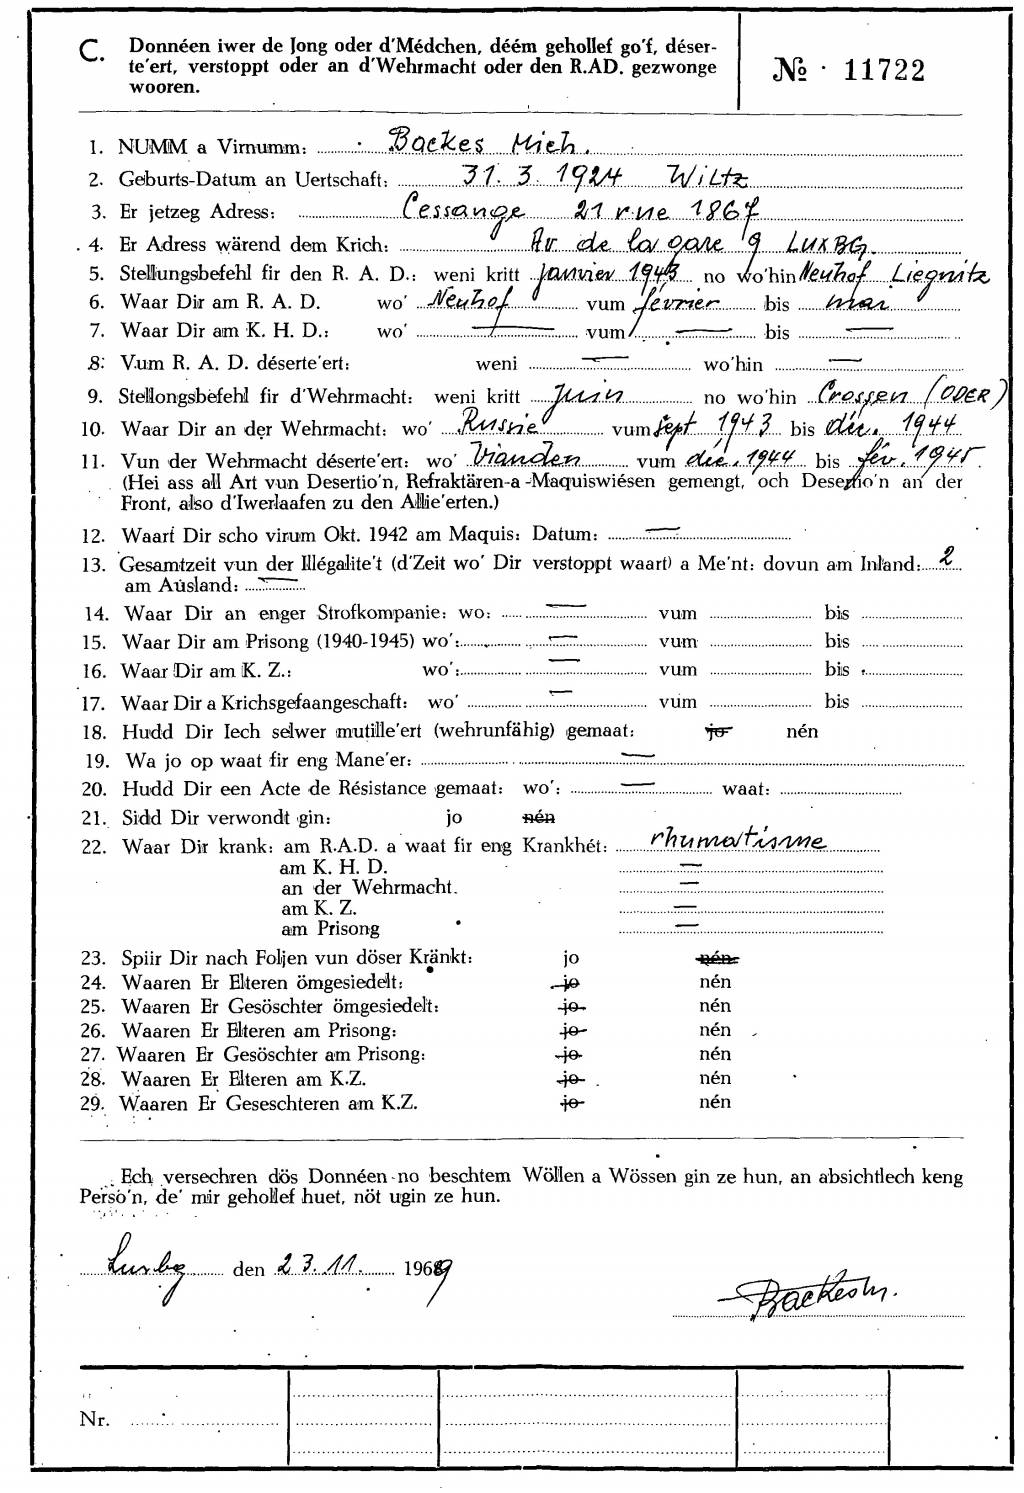 C. Donnéen iwer de Jong oder d'Médchen, déém gehollef go'f, déser-
te'ert, verstoppt oder an d'Wehrmacht oder den R.AD. gezwonge
wooren.
№ 11722
1. NUMM a Virnumm: Backes Mich.
2. Geburts-Datum an Uertschaft: 31. 3. 1924 Wiltz
3. Er jetzeg Adress: Cessange 21 rue 1867
4. Er Adress wärend dem Krich: Av. de la gare 9 LUXBG.
5. Stellungsbefehl fir den R. A. D.: weni kritt janvier 1943 no wo'hin Neuhof Liegnitz
6. Waar Dir am R. A. D. wo' Neuhof vum février bis mai
7. Waar Dir am K. H. D.: wo' — vum — bis —
8. Vum R. A. D. déserte'ert: weni — wo'hin —
9. Stellongsbefehl fir d'Wehrmacht: weni kritt Juin no wo'hin Crossen (ODER)
10. Waar Dir an der Wehrmacht: wo' Russie vum sept 1943 bis déc. 1944
11. Vun der Wehrmacht déserte'ert: wo' Vianden vum déc. 1944 bis fév. 1945.
(Hei ass all Art vun Desertio'n, Refraktären-a-Maquiswiésen gemengt, och Desertio'n an der
Front, also d'Iwerlaafen zu den Allie'erten.)
12. Waart Dir scho virum Okt. 1942 am Maquis: Datum: —
13. Gesamtzeit vun der Illégalite't (d'Zeit wo' Dir verstoppt waart) a Me'nt: dovun am Inland: 2
am Ausland: —
14. Waar Dir an enger Strofkompanie: wo: — vum bis
15. Waar Dir am Prisong (1940-1945) wo': — vum bis
16. Waar Dir am K. Z.: wo': — vum bis
17. Waar Dir a Krichsgefaangeschaft: wo' — vum bis
18. Hudd Dir Iech selwer mutille'ert (wehrunfähig) gemaat: jo nén
19. Wa jo op waat fir eng Mane'er: —
20. Hudd Dir een Acte de Résistance gemaat: wo': — waat:
21. Sidd Dir verwondt gin: jo nén
22. Waar Dir krank: am R.A.D. a waat fir eng Krankhét: rhumatisme
am K. H. D. —
an der Wehrmacht. —
am K. Z. —
am Prisong —
23. Spiir Dir nach Foljen vun döser Kränkt: jo nén
24. Waaren Er Elteren ömgesiedelt: jo nén
25. Waaren Er Gesöschter ömgesiedelt: jo nén
26. Waaren Er Elteren am Prisong: jo nén
27. Waaren Er Gesöschter am Prisong: jo nén
28. Waaren Er Elteren am K.Z. jo nén
29. Waaren Er Geseschteren am K.Z. jo nén
Ech versechren dös Donnéen no beschtem Wöllen a Wössen gin ze hun, an absichtlech keng
Perso'n, de' mir gehollef huet, nöt ugin ze hun.
Luxbg den 23.11. 1969
Backes M.
Nr.